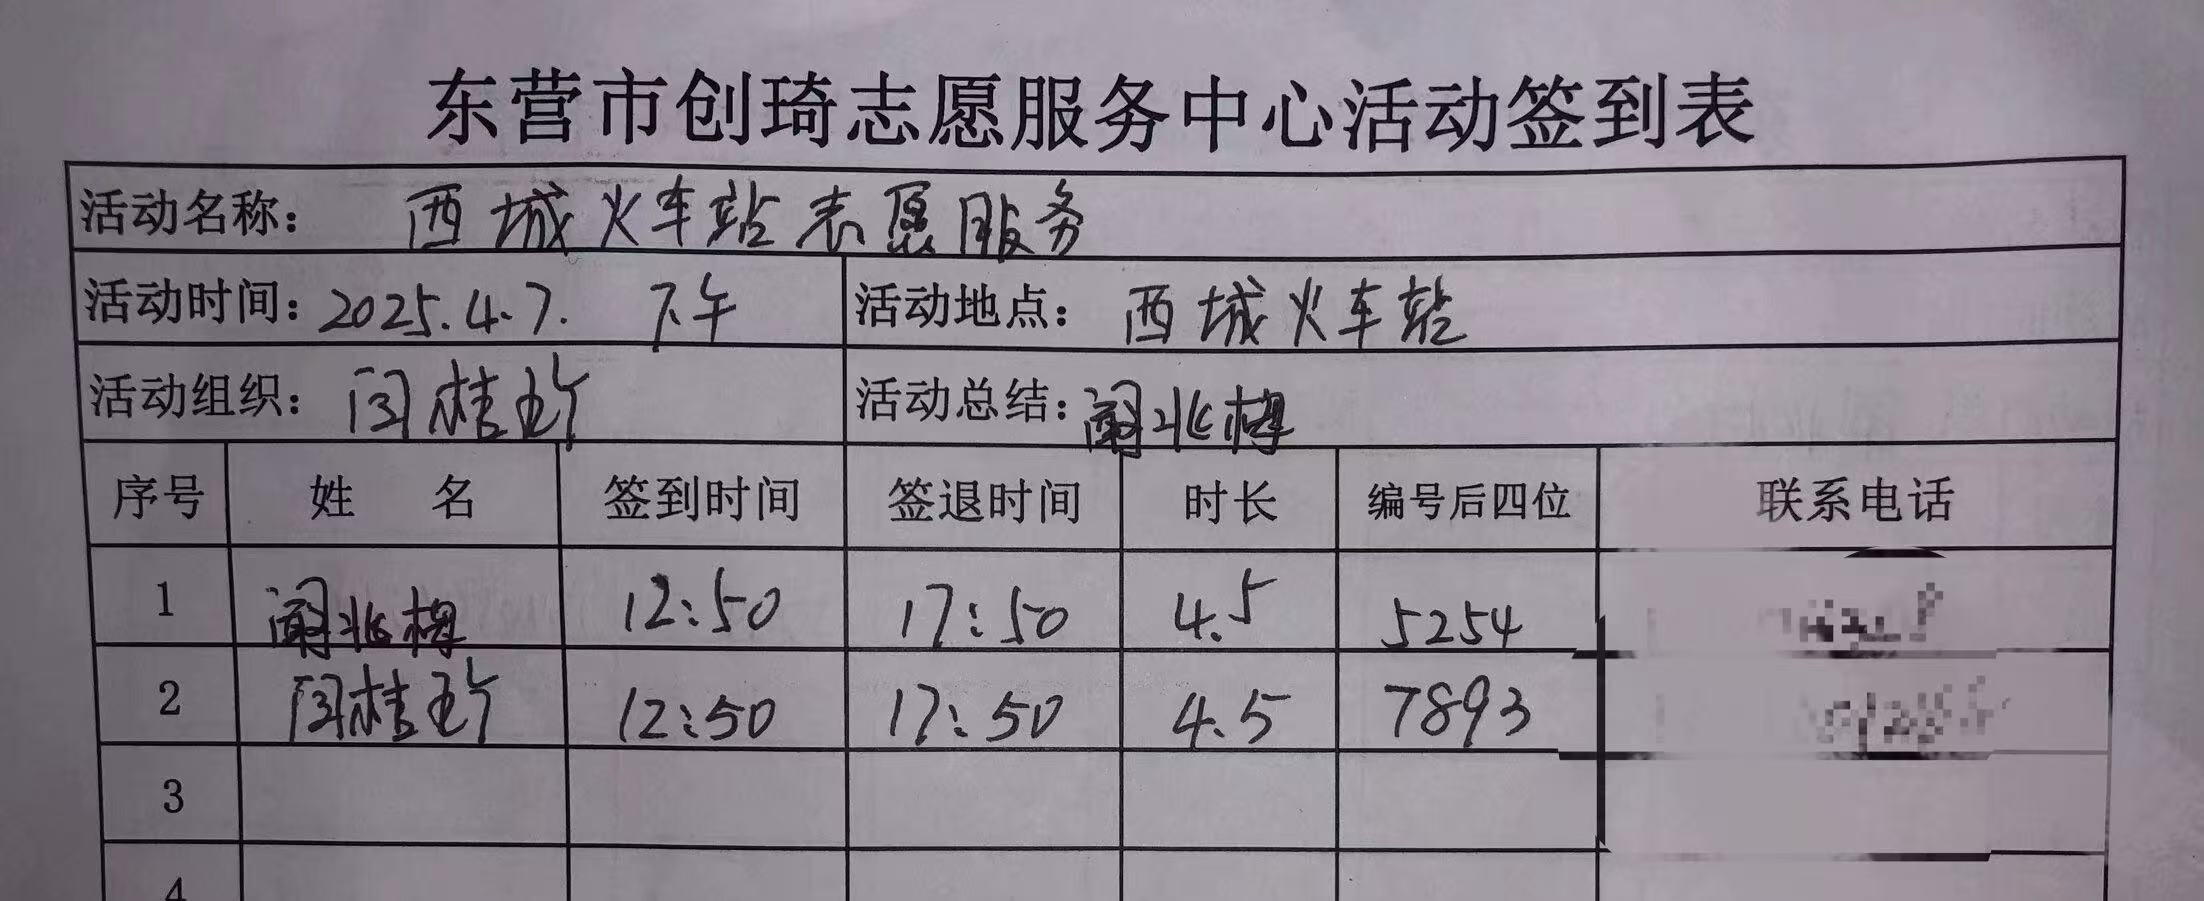 东营市创琦志愿服务中心活动签到表
活动名称： 西城火车站志愿服务
活动时间：2025.4.7. 下午 活动地点： 西城火车站
活动组织： 闫桂珍 活动总结：阚兆梅
序号 姓 名 签到时间 签退时间 时长 编号后四位 联系电话
1 阚兆梅 12:50 17:50 4.5 5254
2 闫桂珍 12:50 17:50 4.5 7893
3
4